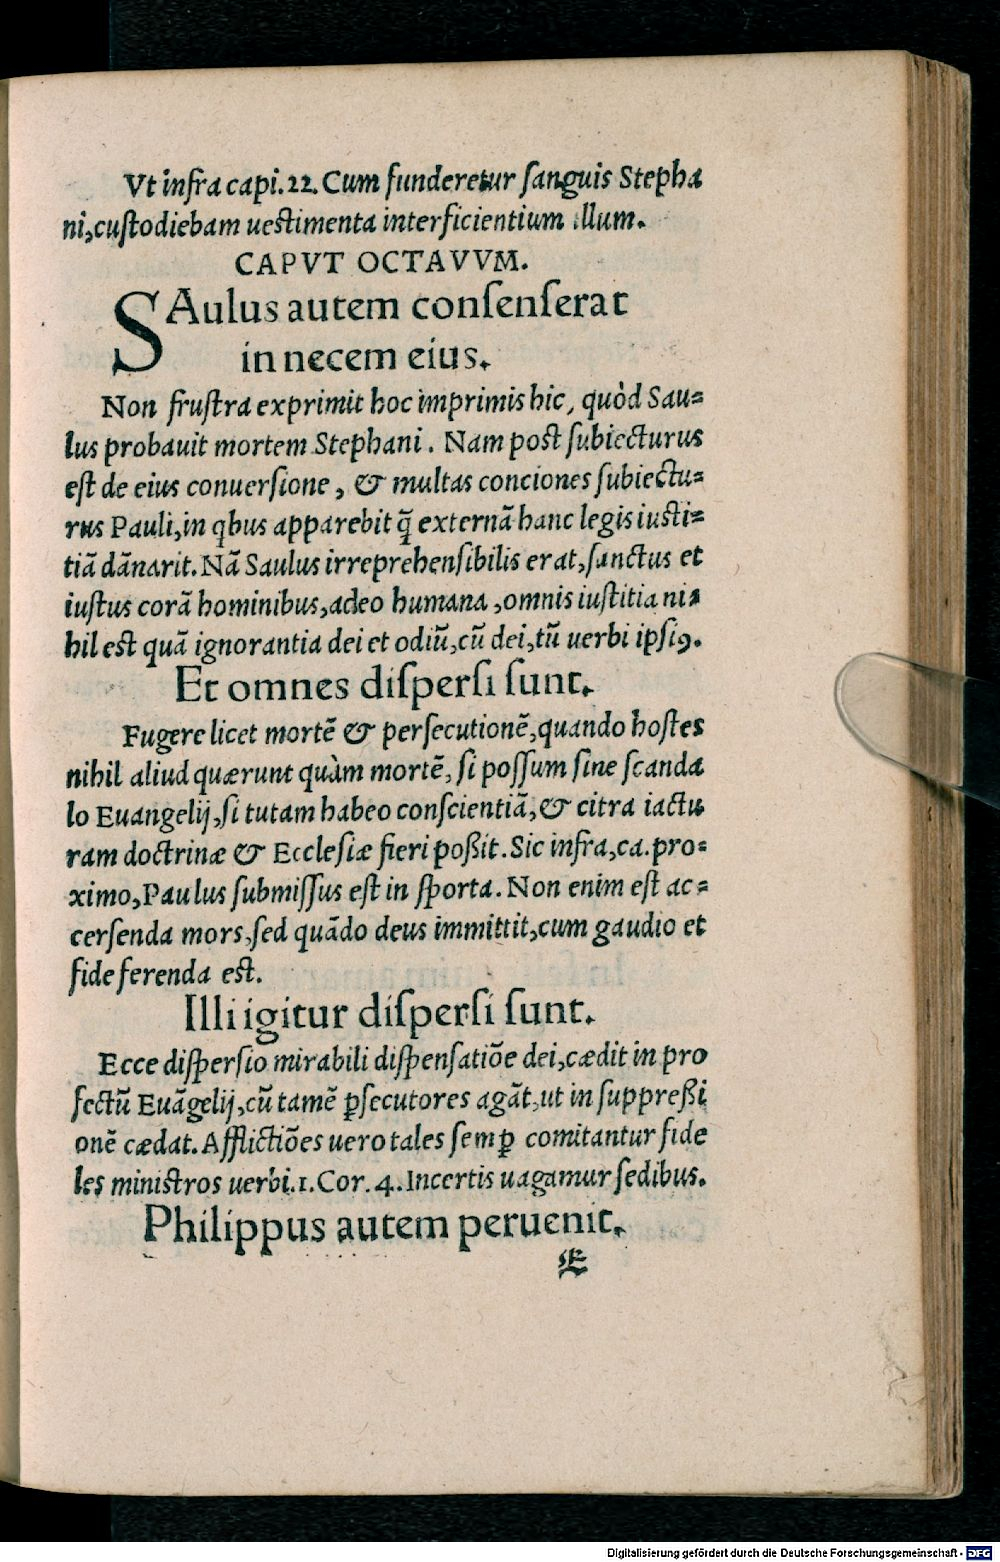 Vt infra capi. 22. Cum funderetur ſanguis Stepha
ni, cuſtodiebam ueſtimenta interficientium illum.
CAPVT OCTAVVM.
SAulus autem conſenſerat
in necem eius.
Non fruſtra exprimit hoc imprimis hic, quòd Sau=
lus probauit mortem Stephani. Nam poſt ſubiecturus
eſt de eius conuerſione, & multas conciones ſubiectu=
rus Pauli, in qbus apparebit q̃ externã hanc legis iuſti=
tiã dãnarit. Nã Saulus irreprehenſibilis erat, ſanctus et
iuſtus corã hominibus, adeo humana, omnis iuſtitia ni=
hil eſt quã ignorantia dei et odiũ, cũ dei, tũ uerbi ipſiꝰ.
Et omnes diſperſi ſunt.
Fugere licet mortẽ & perſecutionẽ, quando hoſtes
nihil aliud quærunt quàm mortẽ, ſi poſſum ſine ſcanda
lo Euangelij, ſi tutam habeo conſcientiã, & citra iactu
ram doctrinæ & Eccleſiæ fieri poßit. Sic infra, ca. pro=
ximo, Paulus ſubmiſſus eſt in ſporta. Non enim eſt ac=
cerſenda mors, ſed quãdo deus immittit, cum gaudio et
fide ferenda eſt.
Illi igitur diſperſi ſunt.
Ecce diſperſio mirabili diſpenſatiõe dei, cædit in pro
fectũ Euãgelij, cũ tamẽ ꝑſecutores agãt, ut in ſuppreßi
onẽ cædat. Afflictiões uero tales ſemꝑ comitantur fide
les miniſtros uerbi. 1. Cor. 4. Incertis uagamur ſedibus.
Philippus autem peruenit.
E
Digitalisierung gefördert durch die Deutsche Forschungsgemeinschaft - DFG